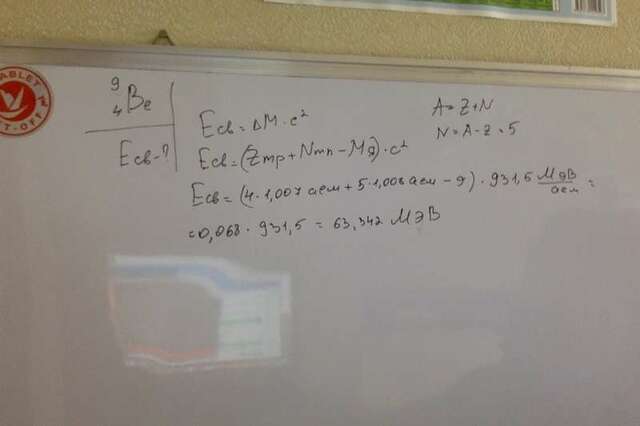 TABLET
FT-OFF
⁹₄Be
Eсв-?
Eсв = ΔM·c²
Eсв = (Zmp + Nmn - Mя)·c²
Eсв = (4·1,007 аем + 5·1,008 аем - 9)·931,5 МэВ/аем =
= 0,068·931,5 = 63,342 МЭВ
A = Z+N
N = A-Z = 5